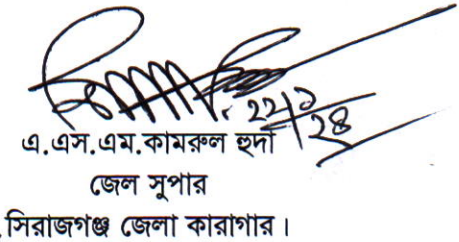 ২২/১/২৪
এ.এস.এম.কামরুল হুদা
জেল সুপার
সিরাজগঞ্জ জেলা কারাগার।